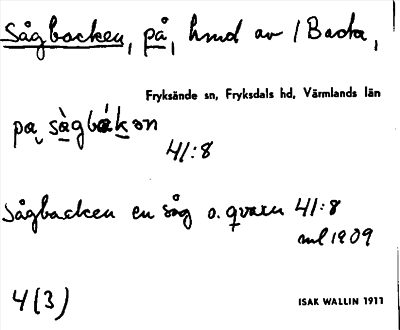 Sågbacken, på, hmd av 1 Basta,
Fryksände sn, Fryksdals hd, Värmlands län
pa sàgbákon
41:8
Sågbacken en såg o. qvarn 41:8
ml 1909
4(3)
ISAK WALLIN 1911